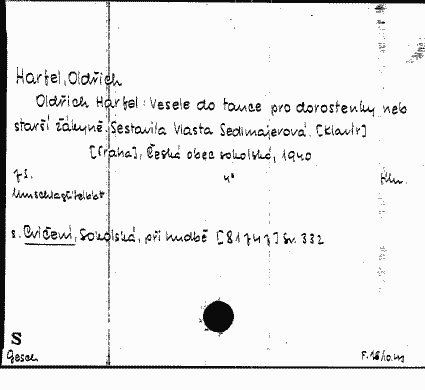 Hartel, Oldřich
Oldřich Hartel: Vesele do tance pro dorostenky neb
starší žákyně. Sestavila Vlasta Sedlmajerová. [Klavír]
[Praha], Česká obec sokolská, 1940
7 S. 4°
Umschlagtitelblatt
s. Cvičení, Sokolská, při hudbě [81747] Nr. 332
S
Gesch